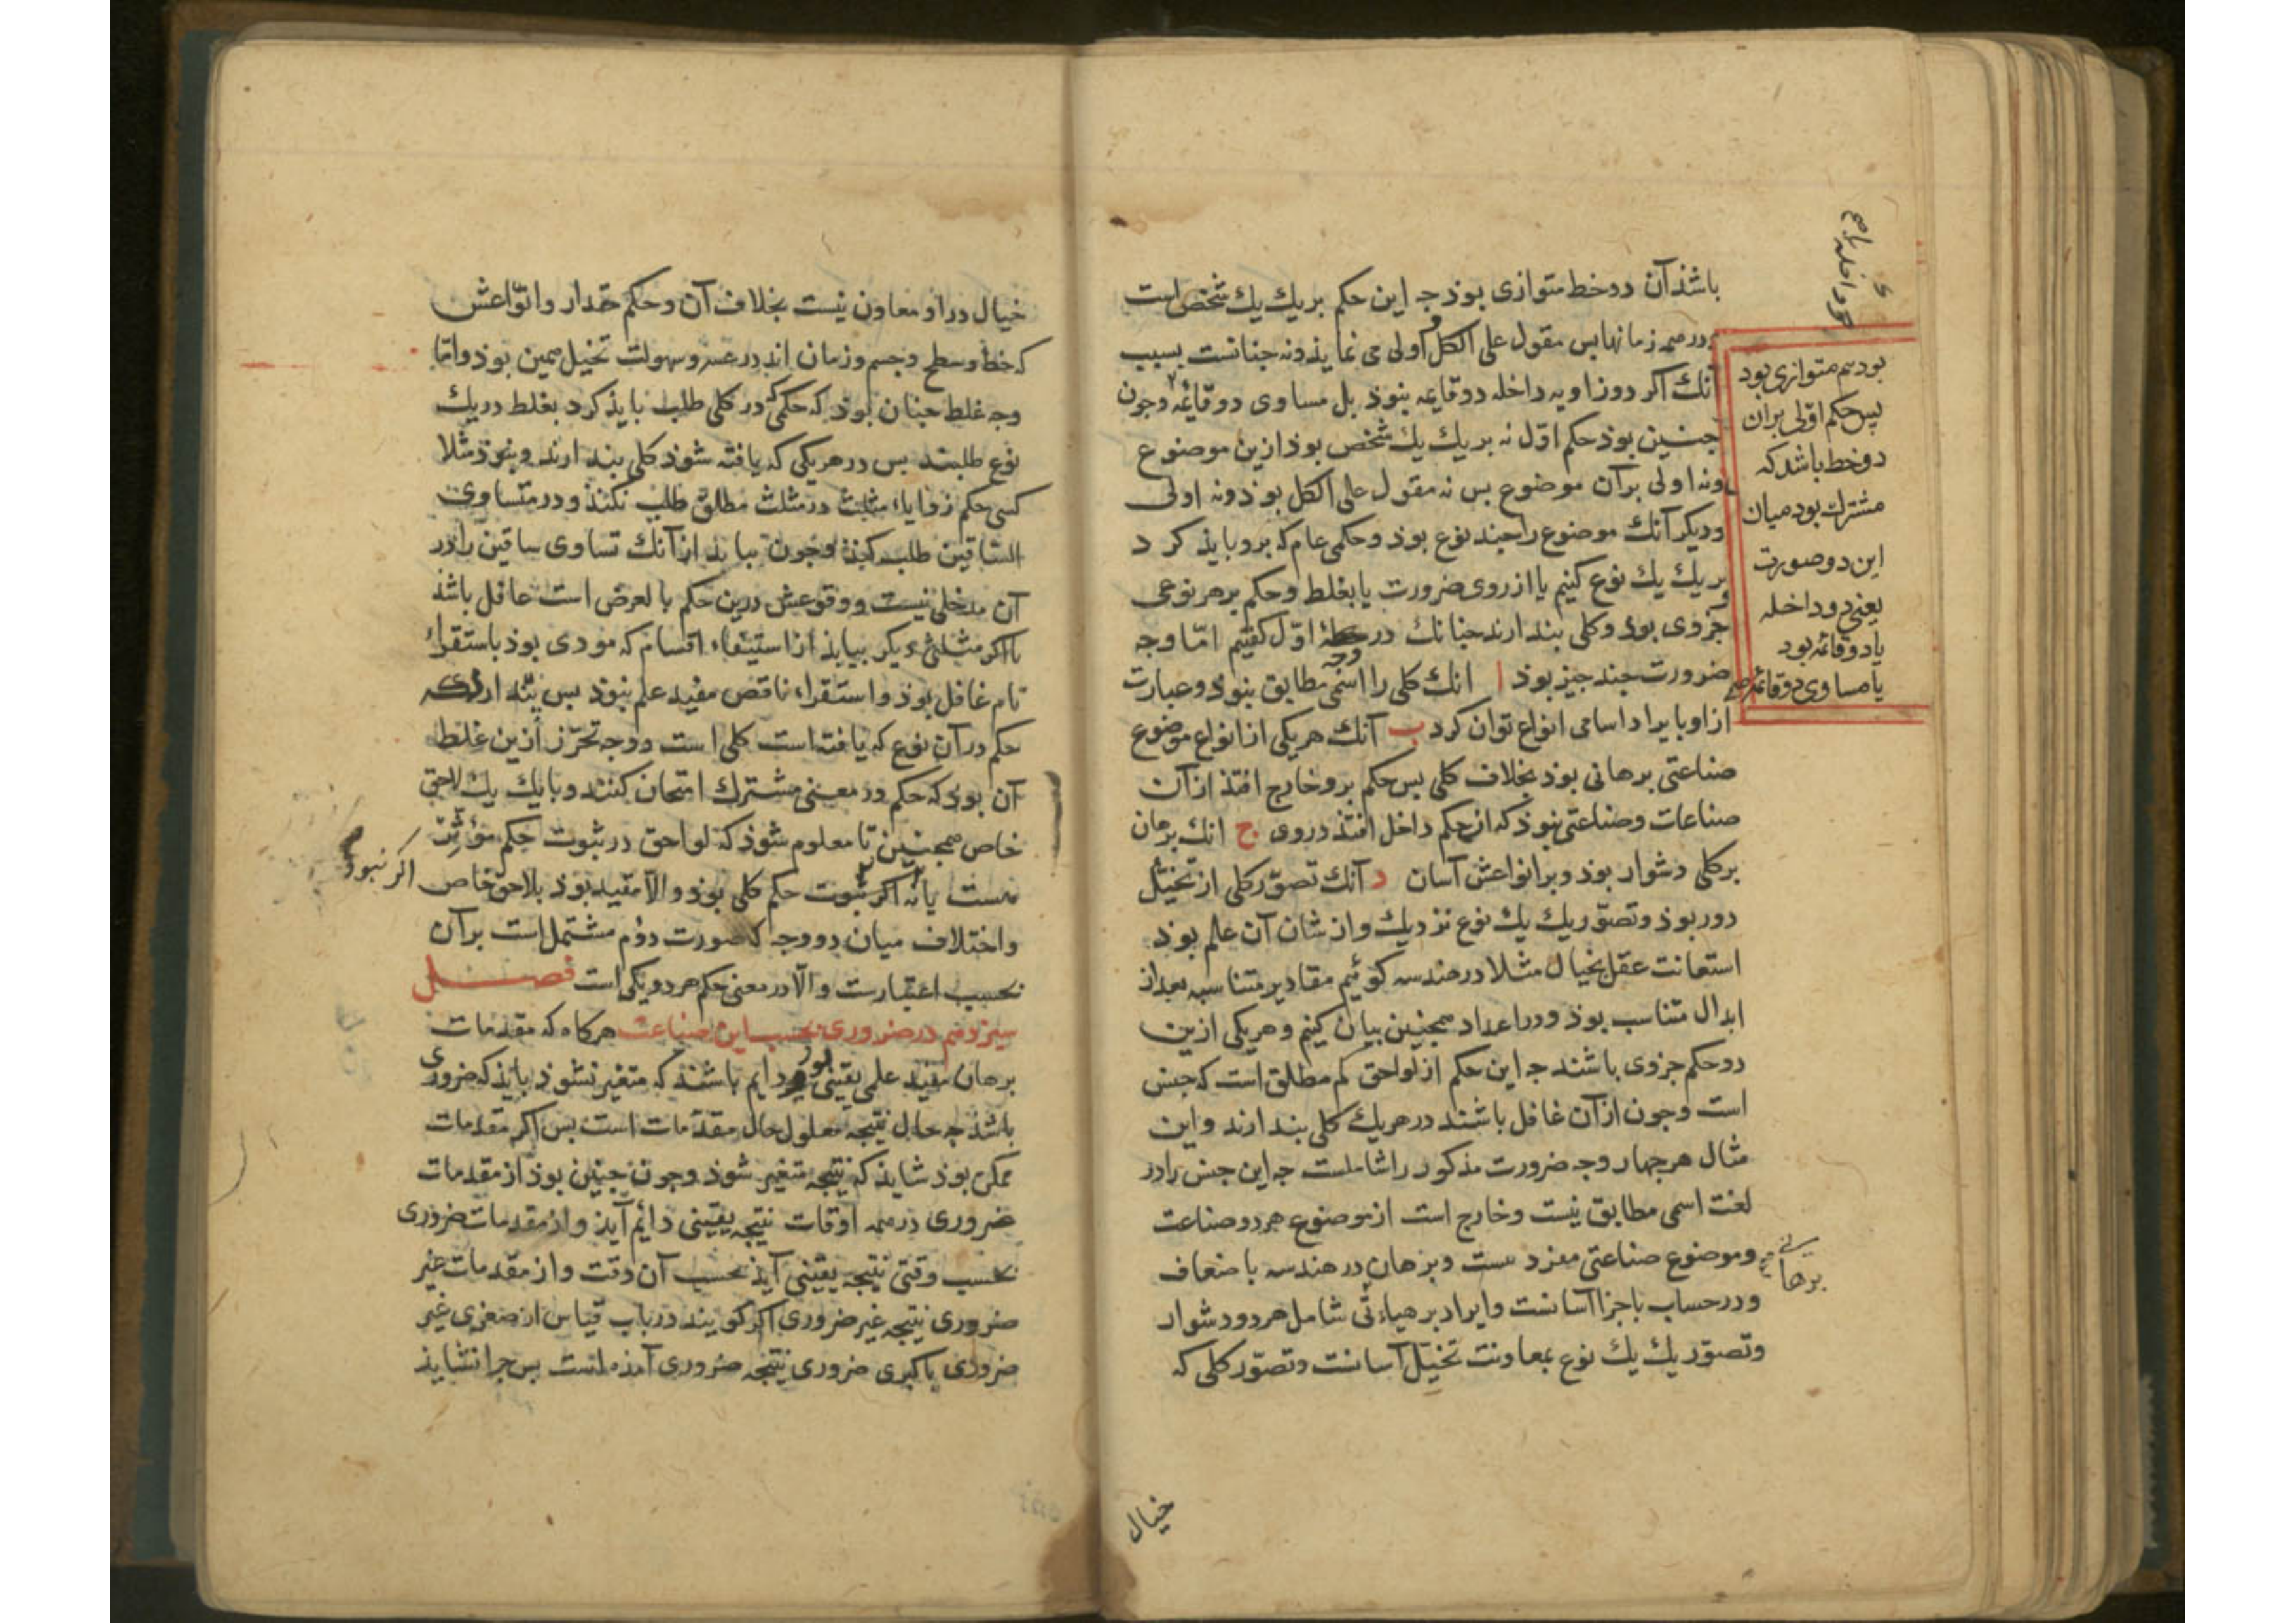 باشذ آن دو خط متوازی بوذ جه این حکم بر یك یك شخص است
و در همه زمانها بس مقول علی الکل و اولی می نمایذ و نه جنانست بسبب
آنك اکر دو زاویه داخله دو قایمه بنوذ بل مساوی دو قائمه وجون
جنین بوذ حکم اوّل نه بر یك یك شخص بوذ ازین موضوع
ونه اولی بر آن موضوع بس نه مقول علی الکل بوذ ونه اولی
ودیکر آنك موضوع را جند نوع بوذ وحکمی عام که برو بایذ کرد
بر یك یك نوع کنیم یا از روی ضرورت یا بغلط وحکم بر هر نوعی
جزوی بوذ وکلی بندارند جنانك در اوّل کفتیم امّا وجه
ضرورت جند جیز بوذ ا انك کلی را اسمی مطابق بنوذ وعبارت
از او بایراد اسامی انواع توان کرد ب آنك هر یکی از انواع موضوع
صناعتی برهانی بوذ بخلاف کلی بس حکم برو خارج افتذ از آن
صناعات وصناعتی بنوذ که از حکم داخل افتذ در وی ج انك برهان
بر کلی دشوار بوذ وبر انواعش آسان د آنك تصوّر کلی از تخیّل
دور بوذ وتصوّر یك یك نوع نزدیك واز شان آن علم بوذ
استعانت عقل بخیال مثلا در هندسه کوئیم مقادیر متناسبه بعد از
ابدال متناسب بوذ ودر اعداد همجنین بیان کنیم وهر یکی ازین
دو حکم جزوی باشند جه این حکم از لواحق کم مطلق است که جنس
است وجون از آن غافل باشند در هر یك کلی بندارند واین
مثال هر جهار وجه ضرورت مذکور را شاملست جه این جنس را در
لغت اسمی مطابق نیست وخارج است از موضوع هر دو صناعت
وموضوع صناعتی مفرد نیست وبرهان در هندسه باضعاف
ودر حساب باجزا آسانست وایراد برهانی شامل هر دو دشوار
وتصوّر یك یك نوع بمعاونت تخیّل آسانست وتصوّر کلی که
بود هم متوازی بود
پس حکم اوّلی بران
دو خط باشد که
مشترك بود میان
این دو صورت
یعنی دو داخله
یا دو قائمه بود
یا مساوی دو قائمه صح
خیال
خیال در او معاون نیست بخلاف آن وحکم مقدار وانواعش
که خط وسطح وجسم وزمان اند در عسر وسهولت تخیل همین بوذ وامّا
وجه غلط جنان بوذ که حکمی که در کلی طلب بایذ کرد بغلط در یك
نوع طلبند بس در هر یکی که یافته شوذ کلی بندارند وبنوذ مثلا
کسی حکم زوایاء مثلث در مثلث مطلق طلب نکند ودر متساوی
الساقین طلب کند وجون بیابذ از آنك تساوی ساقین را در
آن مدخلی نیست ووقوعش درین حکم بالعرض است غافل باشذ
یا اکر مثلثی دیکر بیابذ از استیفاء اقسام که مودی بوذ باستقراء
تام غافل بوذ واستقراء ناقص مفید علم بنوذ بس بندارد که
حکم در آن نوع که یافته است کلی است ووجه تحرّز ازین غلط
آن بوذ که حکم در معنی مشترك امتحان کنند وبا یك یك لاحق
خاص همجنین تا معلوم شوذ که لواحق در ثبوت حکم مؤثر
هست یا نه اکر نبود ثبوت حکم کلی بوذ والا مقید بوذ بلاحق خاص
واختلاف میان دو وجه که صورت دوّم مشتمل است بر آن
بحسب اعتبارست والّا در معنی حکم هر دو یکی است فصل
سیزدهم در ضروری بحسب این صناعت هر کاه که مقدمات
برهان مفید علمی یقینی بود دایم باشند که متغیر نشوذ بایذ که ضروری
باشذ جه حال نتیجه معلول حال مقدّمات است بس اکر مقدمات
ممکن بوذ شایذ که نتیجه متغیر شوذ وجون جنین بوذ از مقدمات
ضروری در همه اوقات نتیجه یقینی دائم آیذ واز مقدمات ضروری
بحسب وقتی نتیجه یقینی آیذ بحسب آن وقت واز مقدمات غیر
ضروری نتیجه غیر ضروری اکر کویند در باب قیاس از صغری غیر
ضروری باکبری ضروری نتیجه ضروری آمذه است بس جرا نشایذ